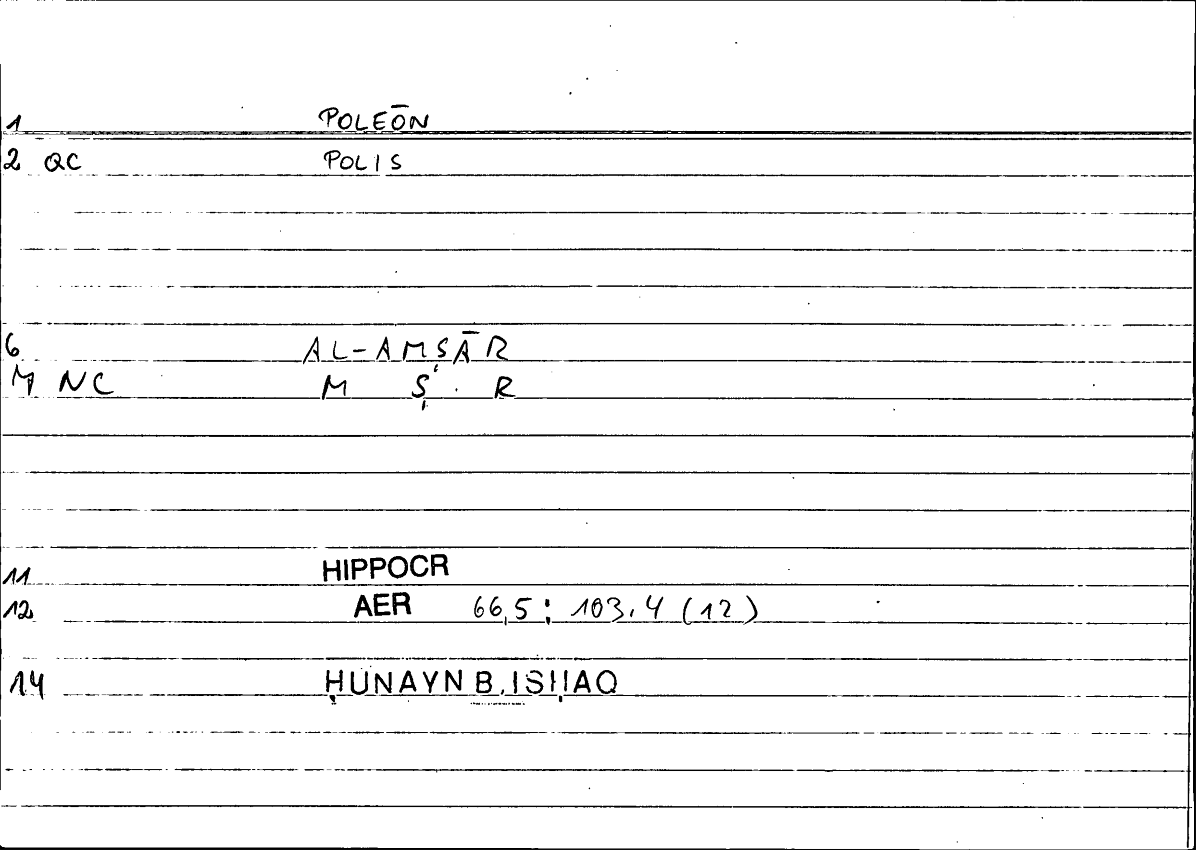 1 POLEŌN
2 QC POLIS
6 AL-AMṢĀR
M NC M Ṣ R
11 HIPPOCR
12 AER 66,5; 103.4 (12)
14 ḤUNAYN B. ISḤAQ